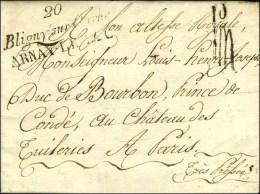 20
Bligny sur
ARNAY-LE-
A Son altesse Royale,
Monseigneur Louis-henri Joseph
Duc de Bourbon, Prince de
Condé, au Château des
Tuileries A Paris.
Très pressée